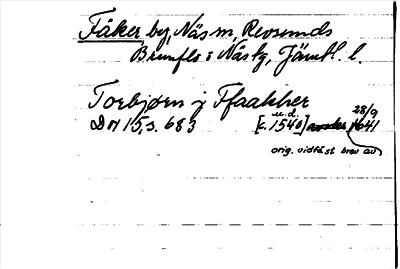 Fåker by, Näs sn, Revsunds
Brunflo o Näs tg, Jämtl. l.
Torbjørn j Ffaakker
28/9
DN 15, s. 683 [c. 1540] u.d. 1641
orig. vidfäst brev av